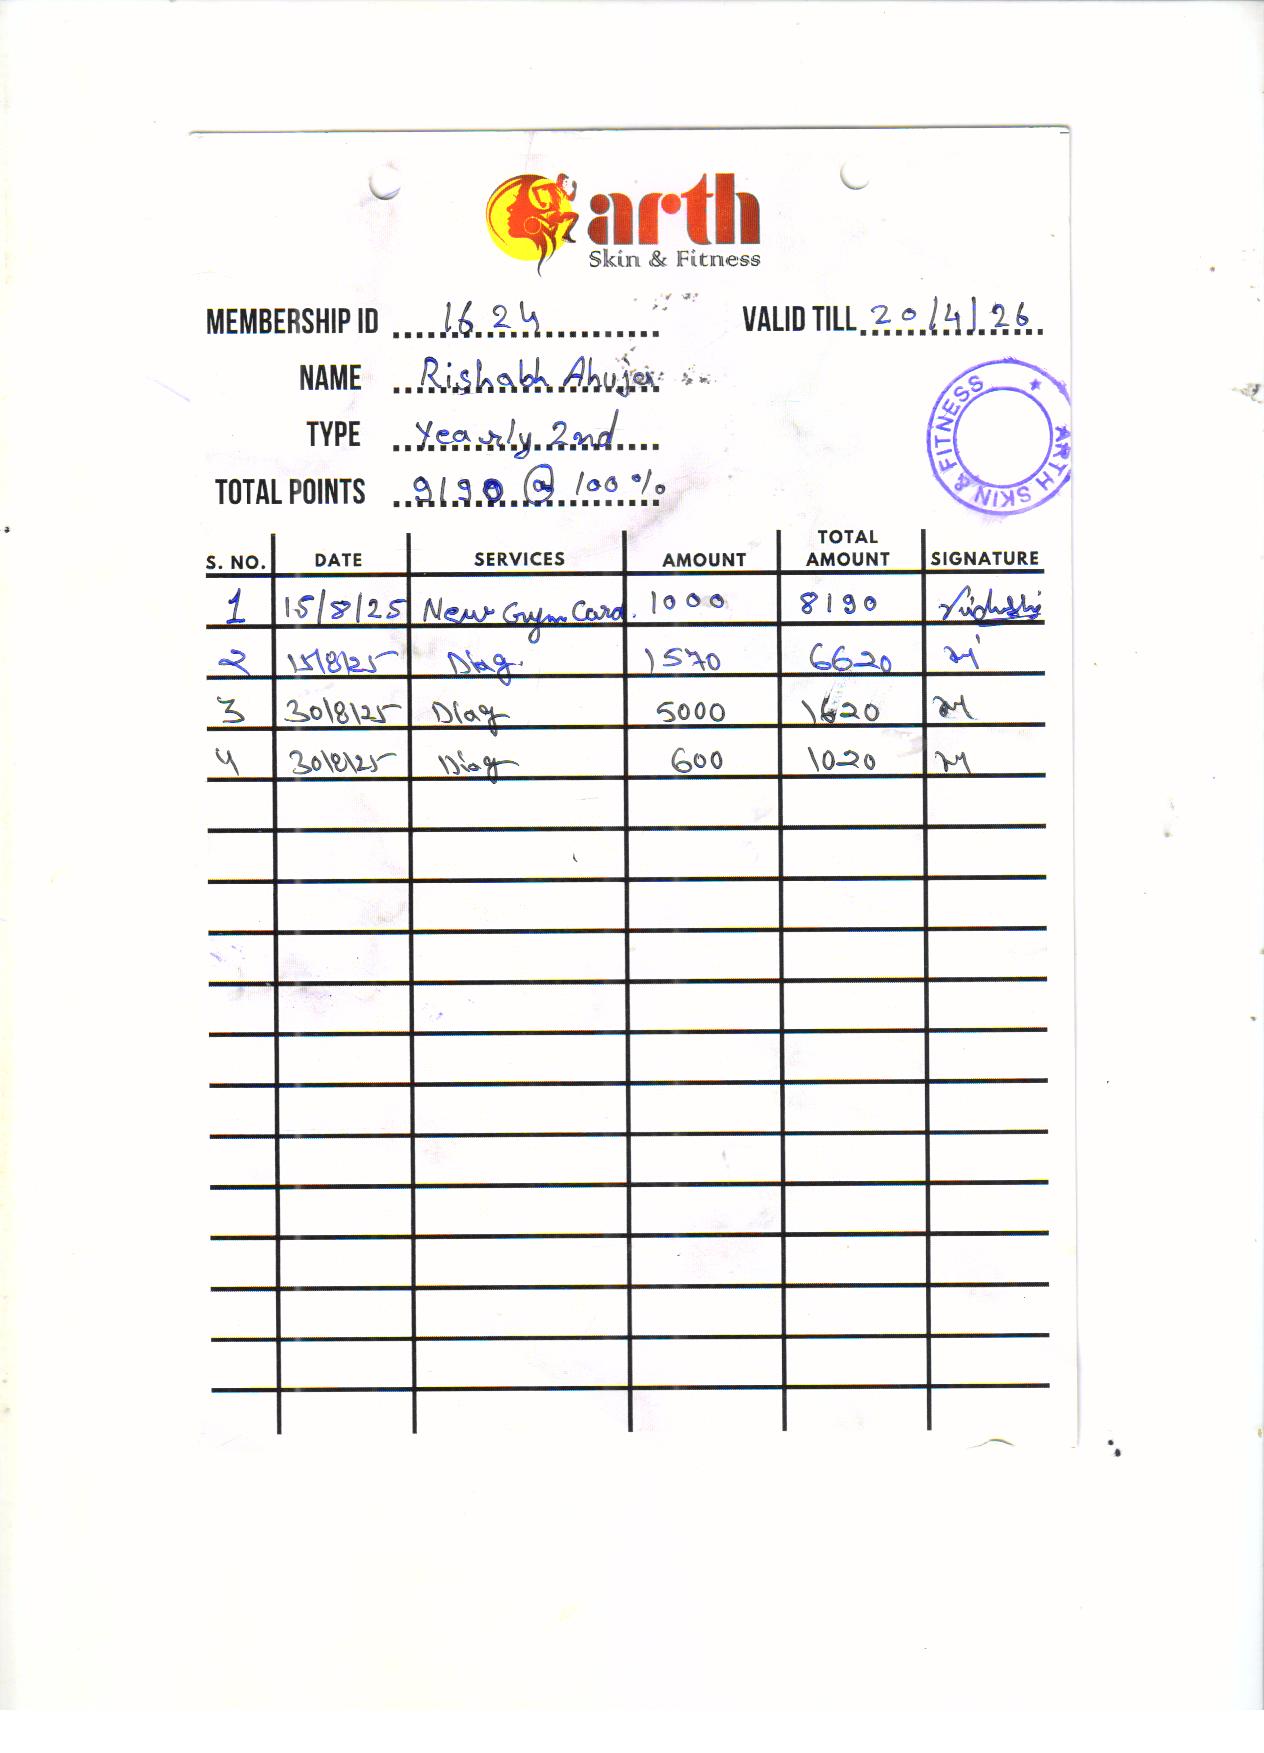 arth
Skin & Fitness
MEMBERSHIP ID 1624 VALID TILL 20/4/26
NAME Rishabh Ahuja
TYPE Yearly 2nd
TOTAL POINTS 9190 @ 100 %
ARTH SKIN & FITNESS ★
S. NO. DATE SERVICES AMOUNT TOTAL AMOUNT SIGNATURE
1 15/8/25 New Gym Card. 1000 8190
2 15/8/25 Diag. 1570 6620
3 30/8/25 Diag 5000 1620
4 30/8/25 Diag 600 1020